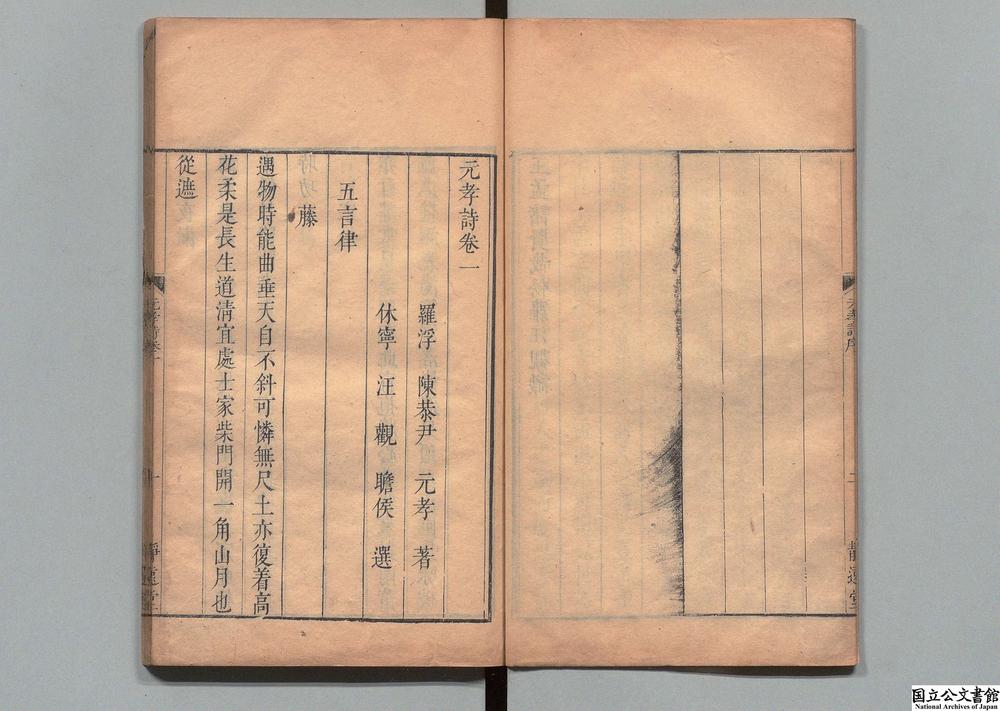 元孝詩卷一
羅浮 陳恭尹 元孝 著
休寧 汪觀 瞻侯 選
五言律
藤
遇物時能曲垂天自不斜可憐無尺土亦復着高
花柔是長生道淸宜處士家柴門開一角山月也
從遮
元孝詩卷一
靜遠堂
元孝詩序
二
靜遠堂
国立公文書館
National Archives of Japan